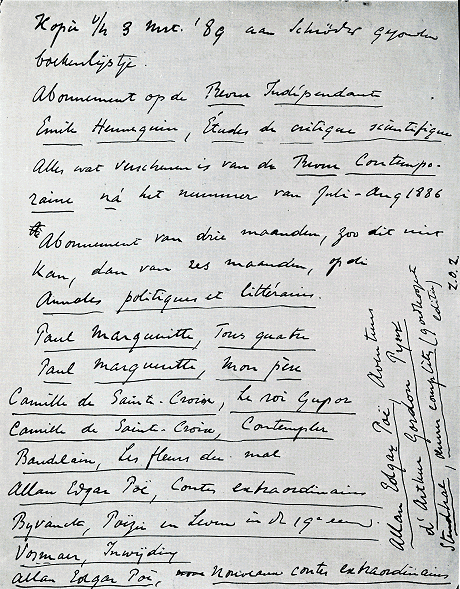 Kopie v/h 3 Mrt. '89 aan Schröder gezonden
boekenlijstje.
Abonnement op de Revue Indépendante
Emile Hennequin, Études de critique scientifique
Alles wat verschenen is van de Revue Contempo-
raine ná het nummer van Juli-Aug 1886
Abonnement van drie maanden, zoo dit niet
kan, dan van zes maanden, op de
Annales politiques et littéraires.
Paul Margueritte, Tous quatre
Paul Margueritte, Mon père
Camille de Sainte-Croix, Le roi Gupor
Camille de Sainte-Croix, Contempler
Baudelaire, Les fleurs du mal
Allan Edgar Poë, Contes extraordinaires
Byvanck, Poëzie en Leven in de 19e eeuw.
Vosmaer, Inwijding
Allan Edgar Poë, Nouveaux contes extraordinaires
Allan Edgar Poë, Aventures
d'Arthur Gordon Pym
Stendhal, œuvres complètes (goedkoopste editie)
z.o.z